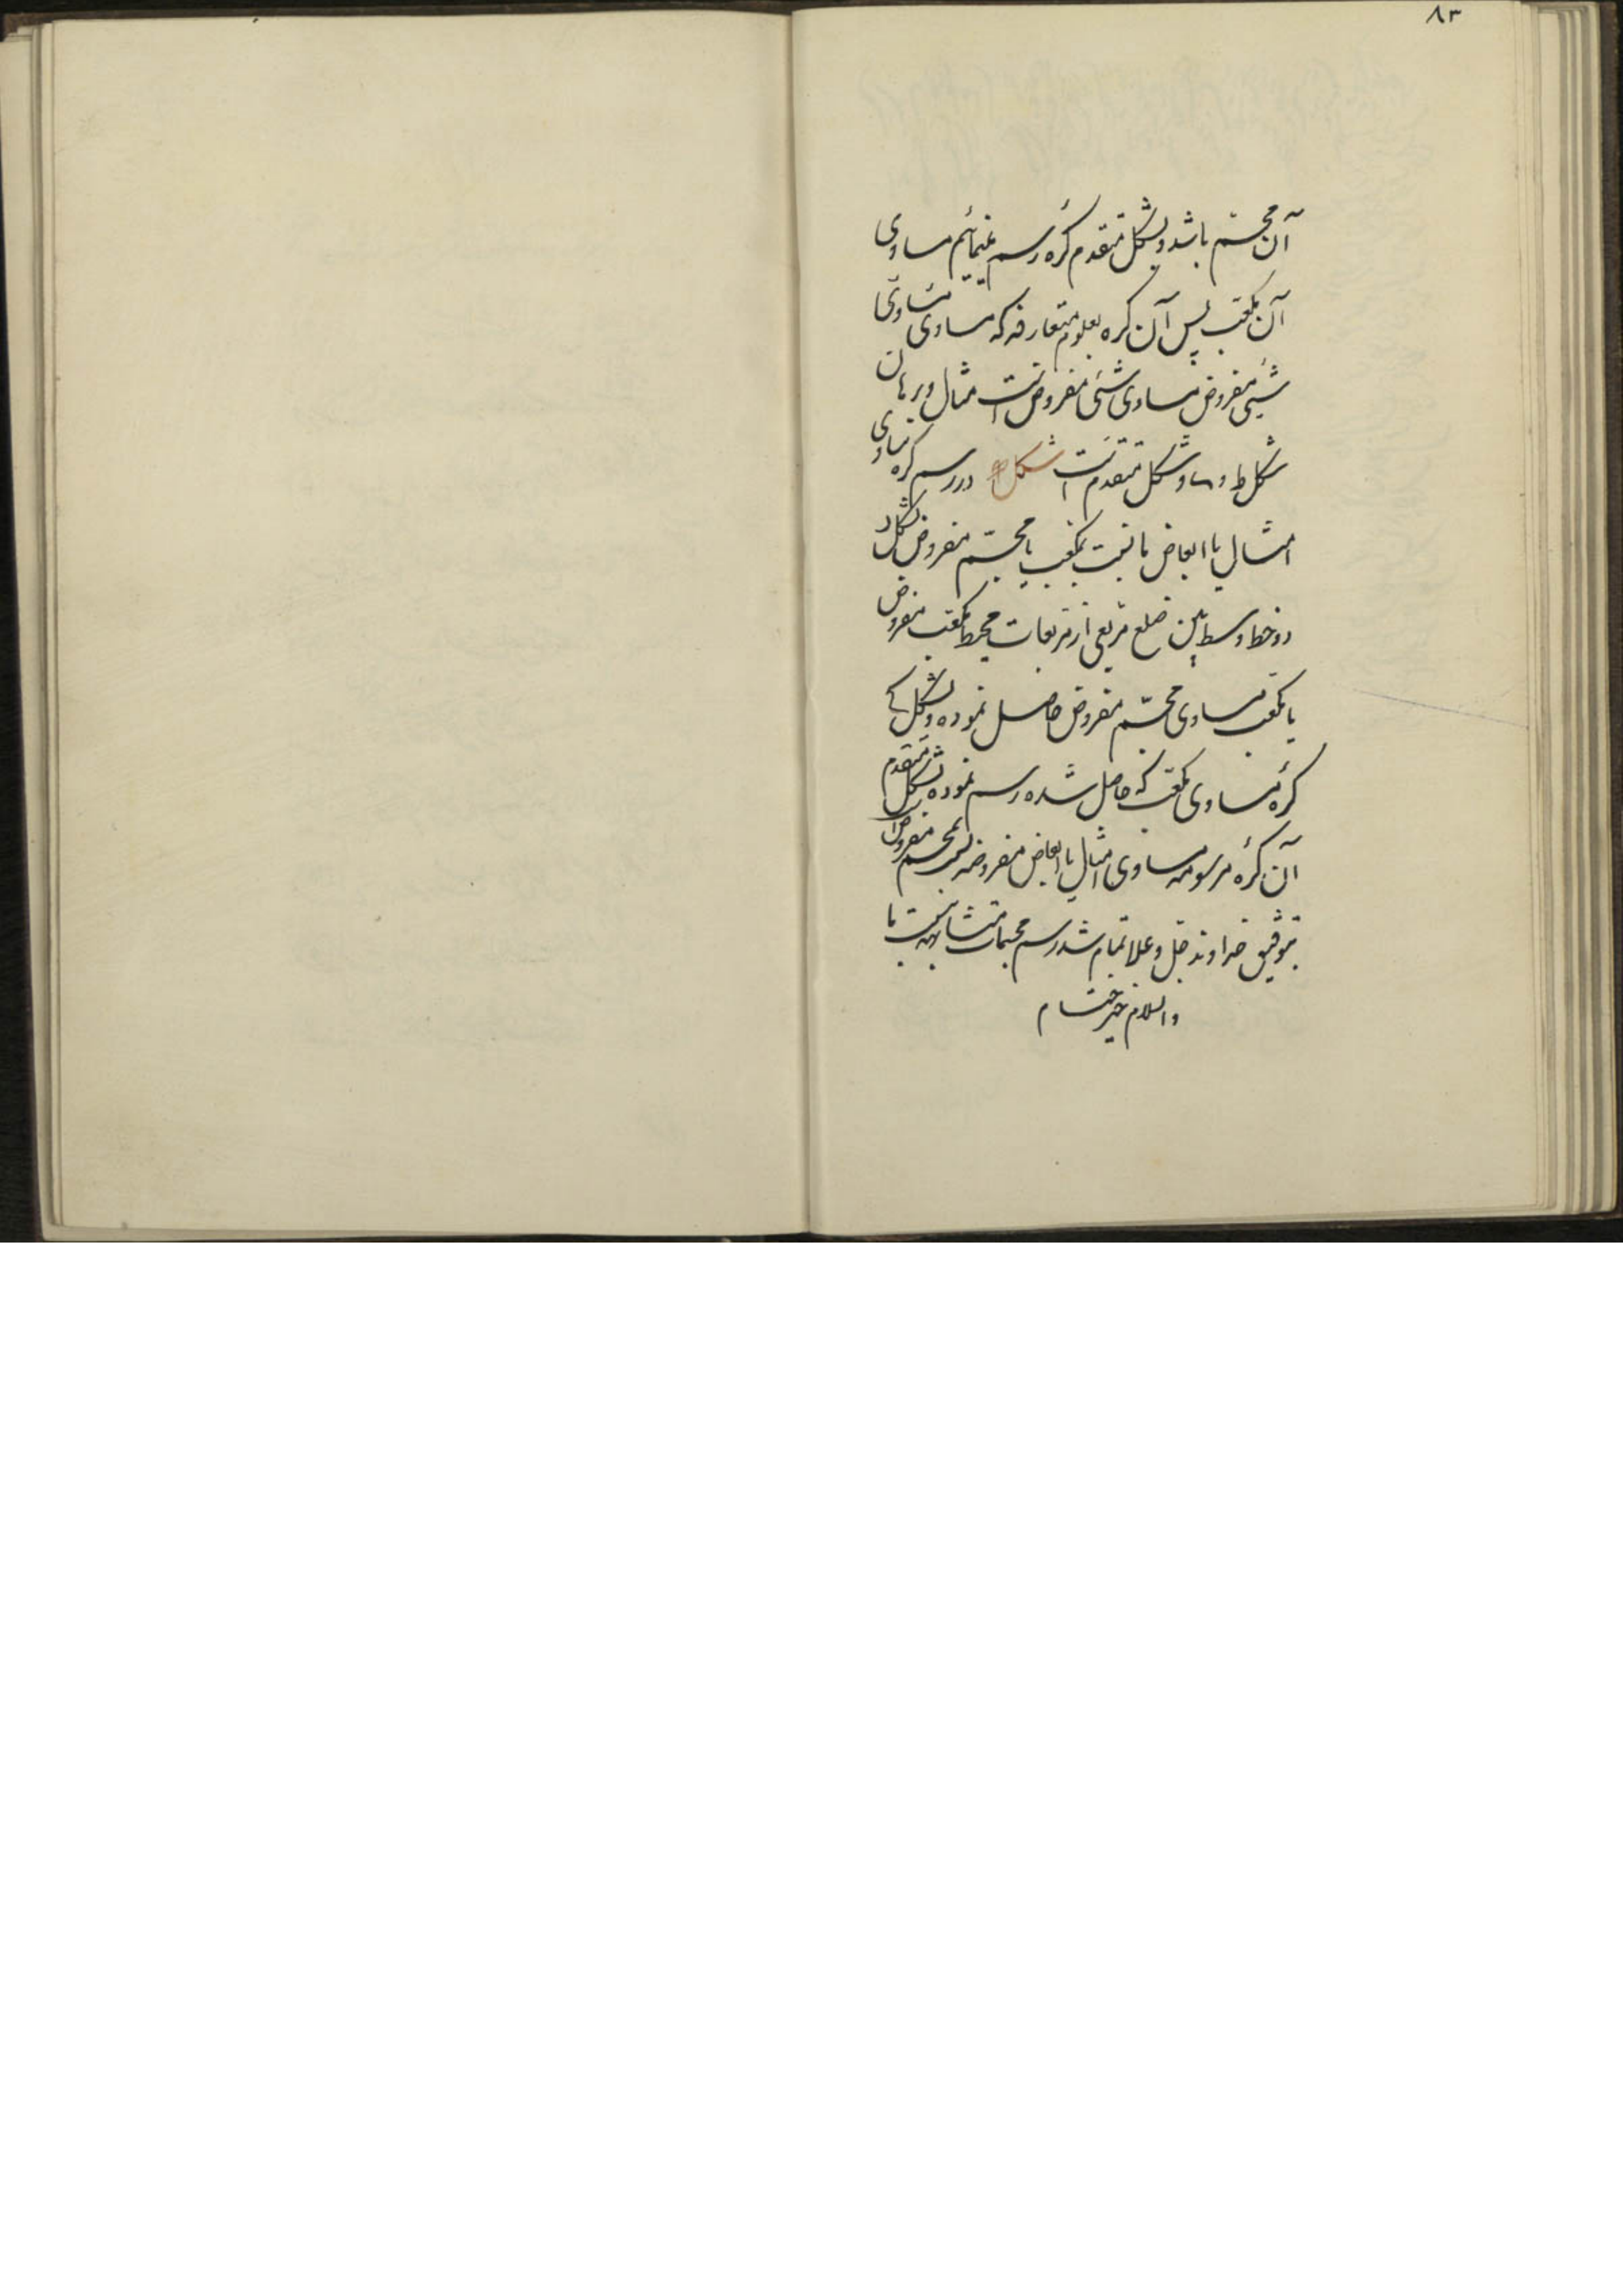 ۸۳
آن مجسّم باشد و بشکل متقدم کرهٔ رسم مینمائیم مساوی
آن مکعب پس آن کره بعلوم متعارفه که مساوی مساوی
شیئی مفروض مساوی شئی مفروض است مثال و برهان
شکل ط و شکل متقدم است شکل در رسم کره مساوی
امثال یا ابعاض یا نسبت مکعب یا مجسّم مفروض بشکل
دو خط وسط بین ضلع مربعی از مربعات محیط مکعب مفروض
یا مکعب مساوی مجسّم مفروض حاصل نموده و بشکل
کرهٔ مساوی مکعب که حاصل شده رسم نموده بشکل متقدم
آن کرهٔ مرسومه مساوی امثال یا ابعاض مفروضه مجسم مفروض است
بتوفیق خداوند جلّ و علا تمام شد رسم مجسمات متشابهه
والسلام خیر ختام